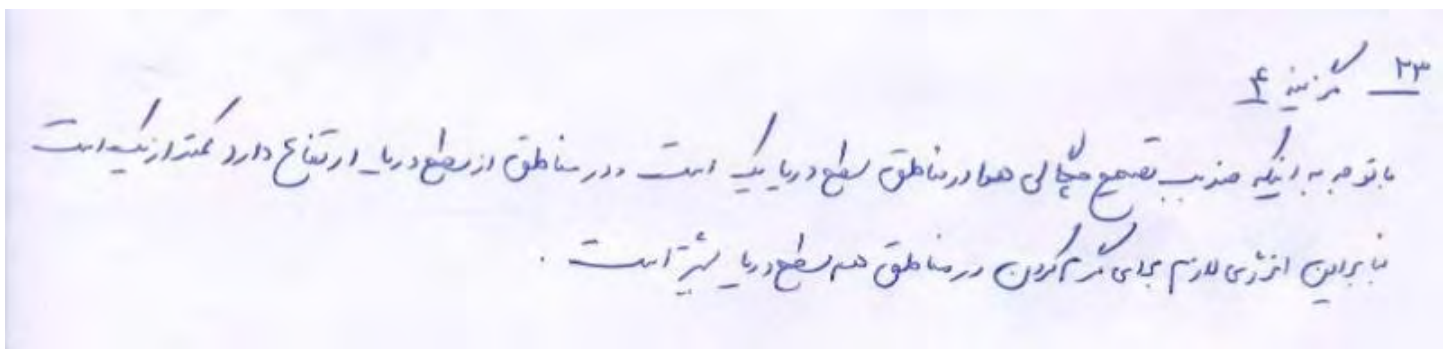 ۲۳ گزینه ۴
با توجه به اینکه ضریب تصحیح چگالی هوا در مناطق سطح دریا یک است و در مناطق از سطح دریا ارتفاع دارد کمتر از یک است
بنابراین انرژی لازم برای گرم کردن در مناطق هم سطح دریا بیشتر است .